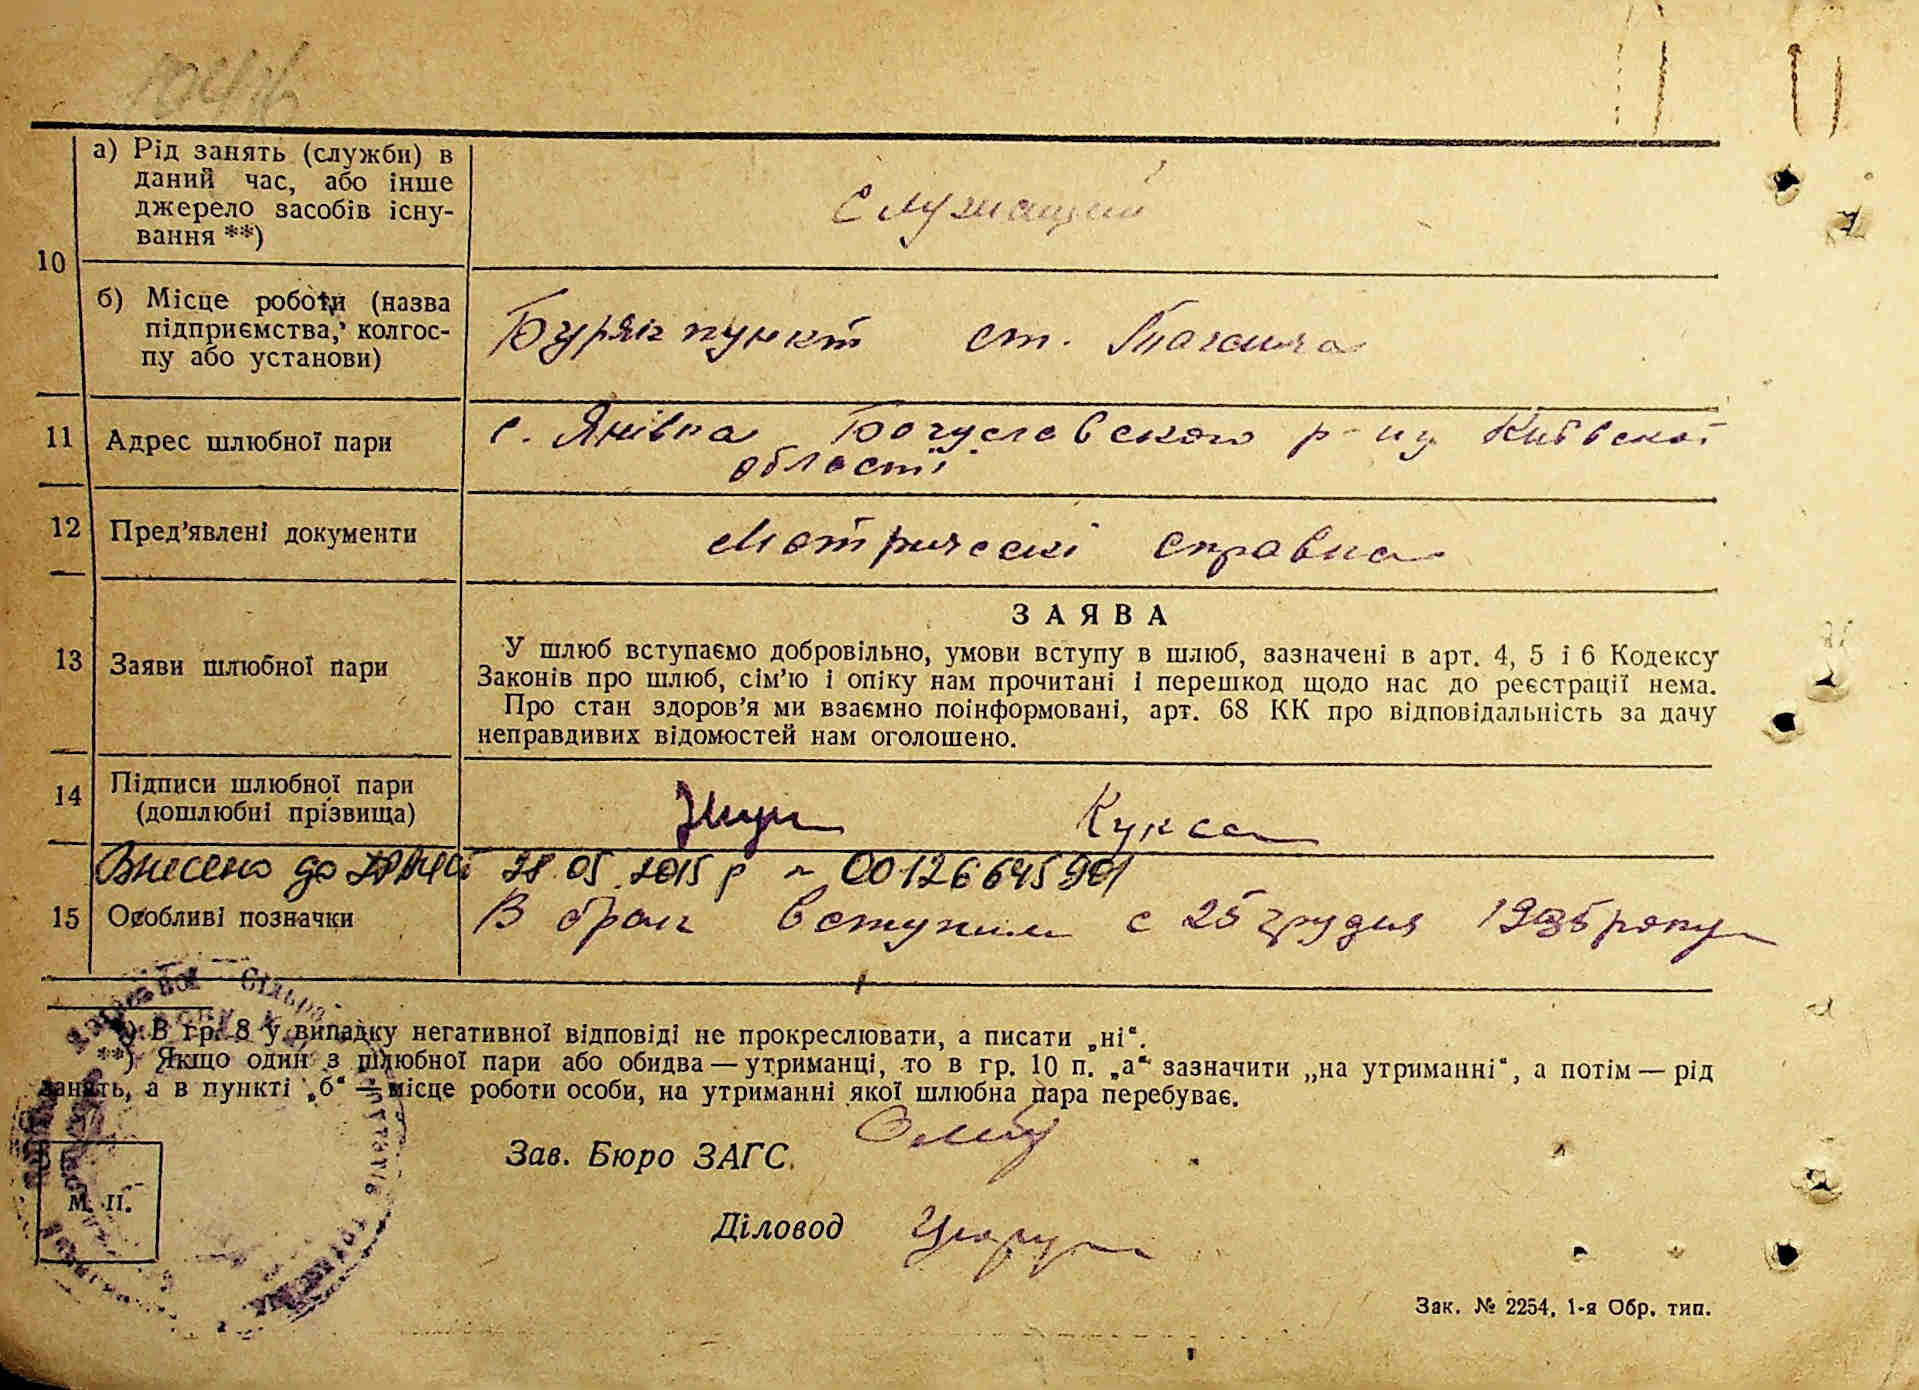 а) Рід занять (служби) в
даний час, або інше
джерело засобів існу-
вання **)
служащий
10
б) Місце роботи (назва
підприємства, колгос-
пу або установи)
Буряк пункт ст. Таганча
11 Адрес шлюбної пари
с. Янівка Богуславского р-ну Київскої
області
12 Пред'явлені документи
Метрическі справка
ЗАЯВА
13 Заяви шлюбної пари
У шлюб вступаємо добровільно, умови вступу в шлюб, зазначені в арт. 4, 5 і 6 Кодексу
Законів про шлюб, сім'ю і опіку нам прочитані і перешкод щодо нас до реєстрації нема.
Про стан здоров'я ми взаємно поінформовані, арт. 68 КК про відповідальність за дачу
неправдивих відомостей нам оголошено.
14 Підписи шлюбної пари
(дошлюбні прізвища)
Кукса
Внесено до 28.05.2015 р 00126645901
15 Особливі позначки
В брак вступили с 25 грудня 1935 року
*) В гр. 8 у випадку негативної відповіді не прокреслювати, а писати „ні“.
**) Якщо один з шлюбної пари або обидва — утриманці, то в гр. 10 п. „а“ зазначити „на утриманні“, а потім — рід
занять, а в пункті „б“ — місце роботи особи, на утриманні якої шлюбна пара перебуває.
Зав. Бюро ЗАГС
М. П.
Діловод
Зак. № 2254, 1-я Обр. тип.